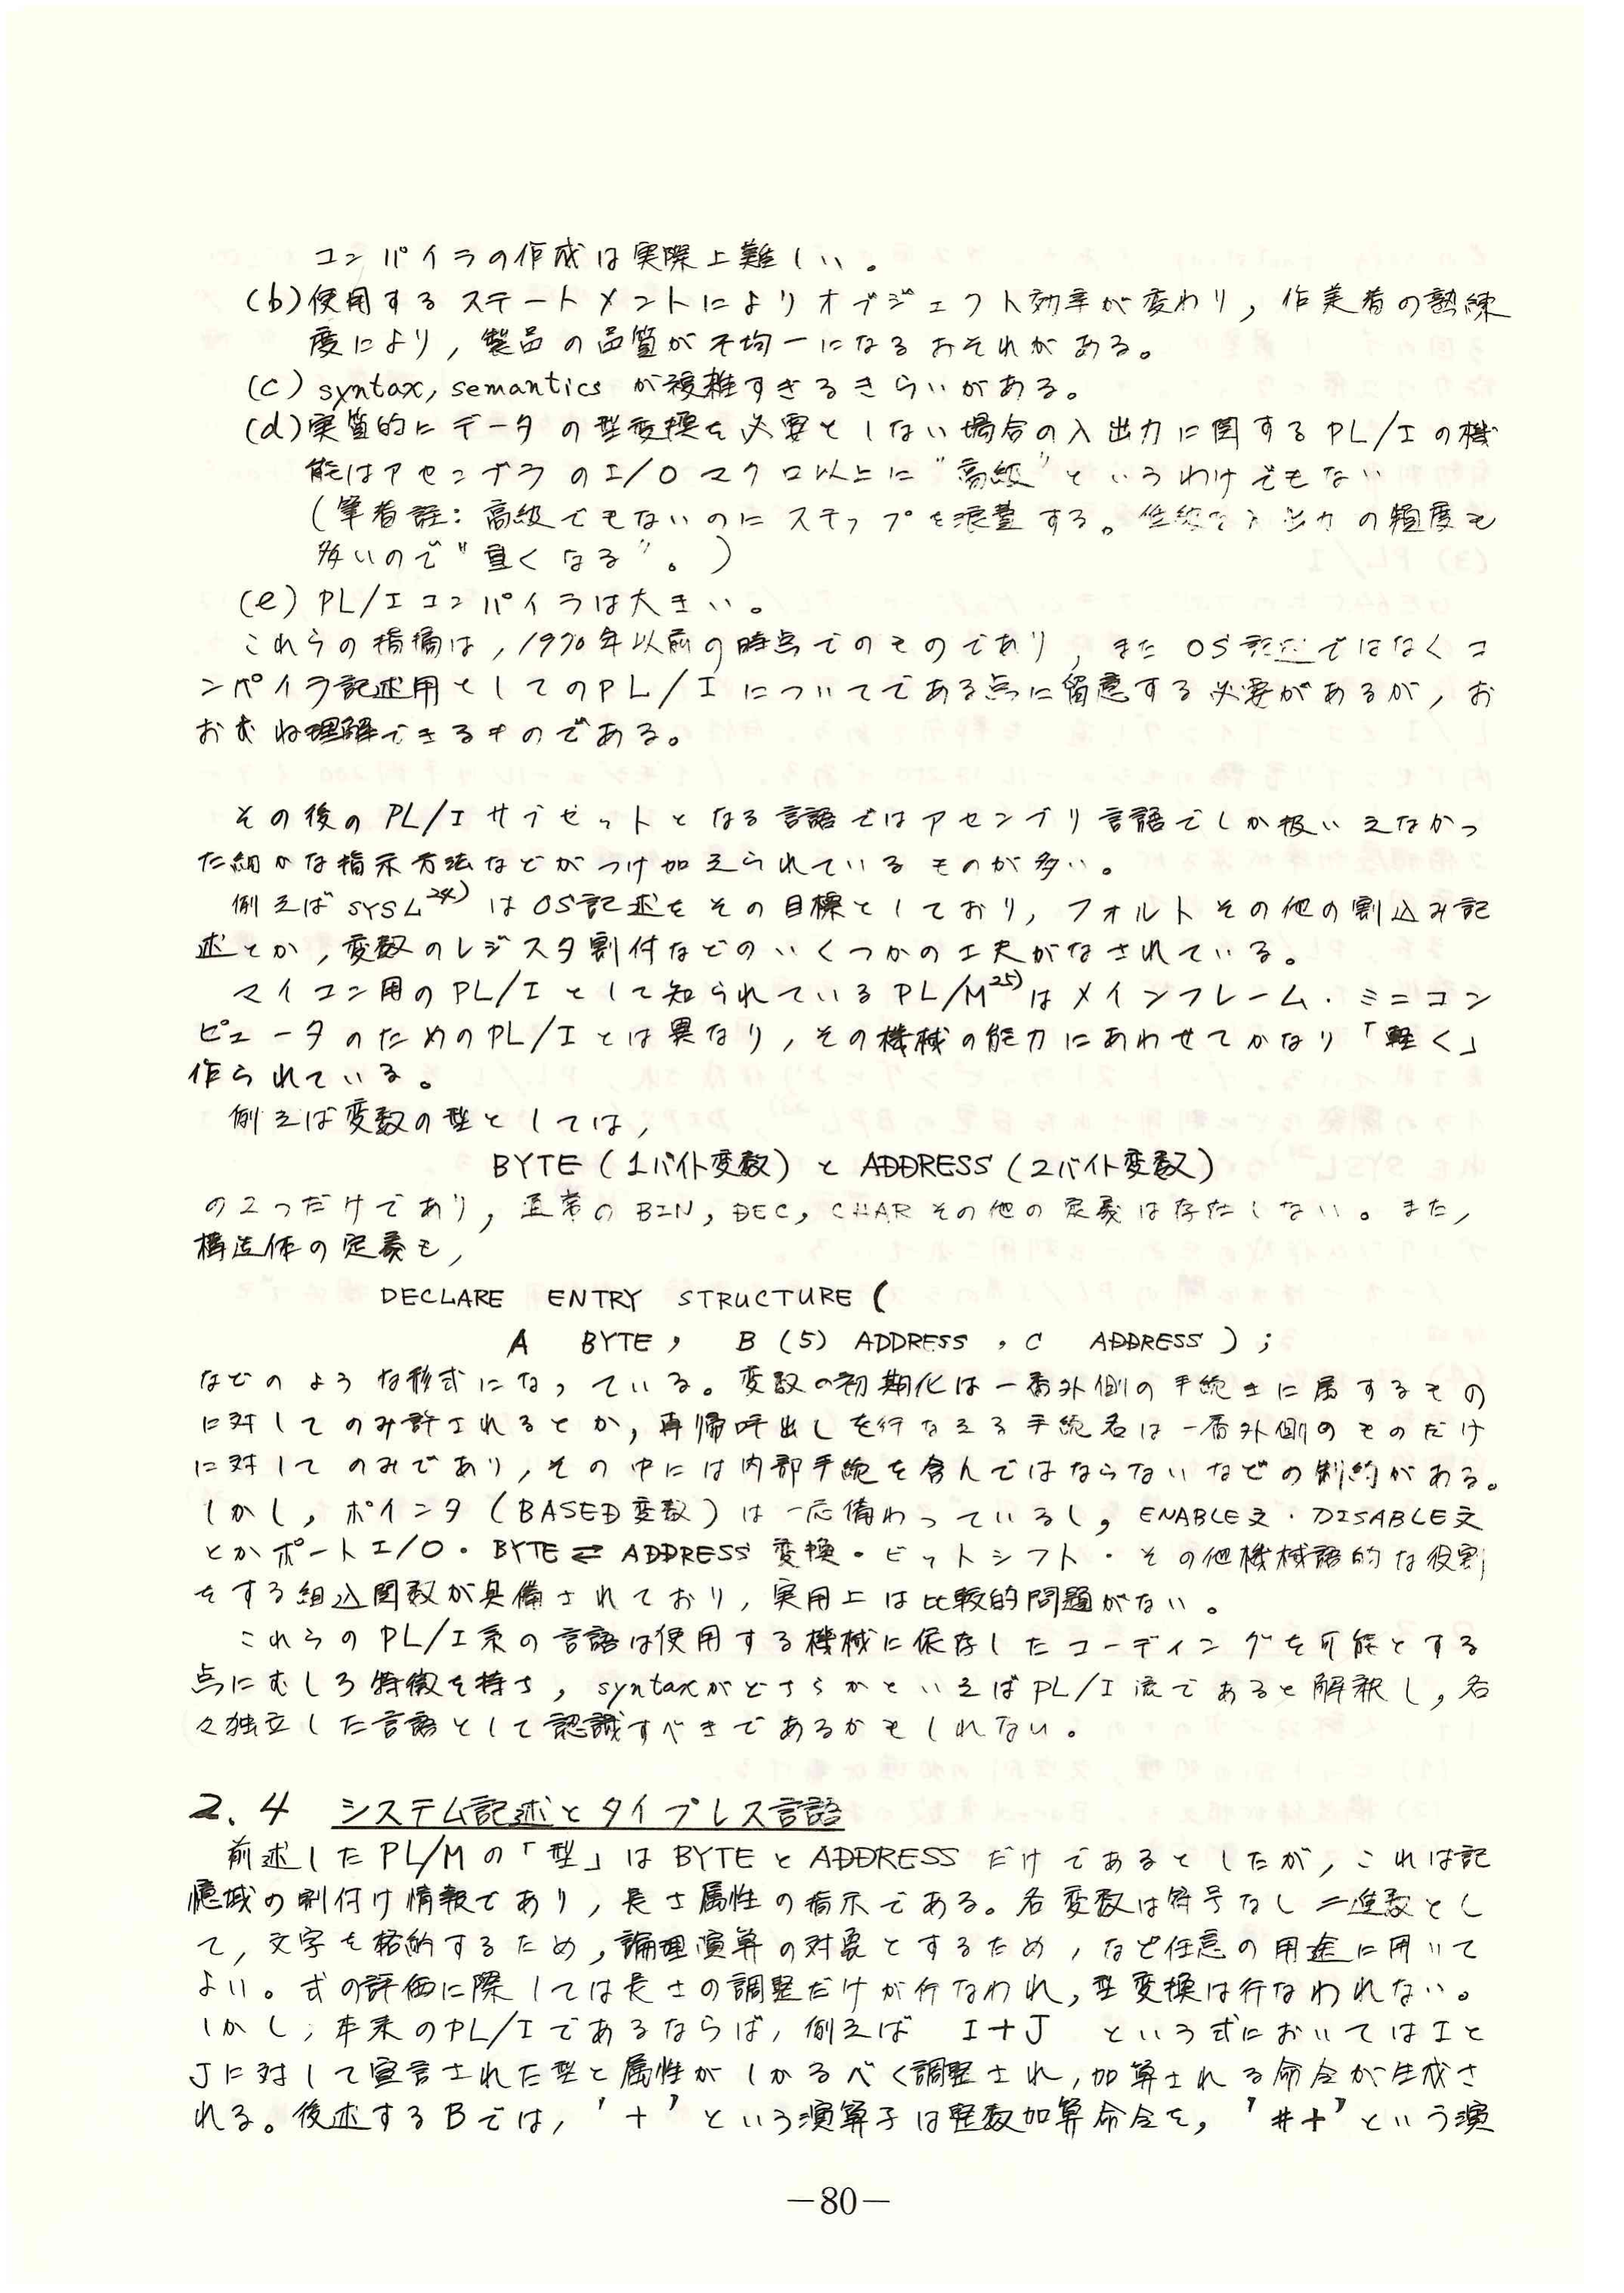 コンパイラの作成は実際上難しい。
(b)使用するステートメントによりオブジェクト効率が変わり,作業者の熟練
度により,製品の品質が不均一になるおそれがある。
(c) syntax, semantics が複雑すぎるきらいがある。
(d)実質的にデータの型変換を必要としない場合の入出力に関するPL/Iの機
能はアセンブラのI/Oマクロ以上に"高級"というわけでもない
(筆者註:高級でもないのにステップを浪費する。 の頻度も
多いので"重くなる"。)
(e) PL/Iコンパイラは大きい。
これらの指摘は,1970年以前の時点でのものであり,またOS記述ではなくコ
ンパイラ記述用としてのPL/Iについてである点に留意する必要があるが,お
おむね理解できるものである。
その後のPL/Iサブセットとなる言語ではアセンブリ言語でしか扱いえなかっ
た細かな指示方法などがつけ加えられているものが多い。
例えばSYSL24)はOS記述をその目標としており,フォルトその他の割込み記
述とか,変数のレジスタ割付などのいくつかの工夫がなされている。
マイコン用のPL/Iとして知られているPL/M25)はメインフレーム・ミニコン
ピュータのためのPL/Iとは異なり,その機械の能力にあわせてかなり「軽く」
作られている。
例えば変数の型としては,
BYTE(1バイト変数)とADDRESS(2バイト変数)
の2つだけであり,通常のBIN, DEC, CHARその他の定義は存在しない。また,
構造体の定義も,
DECLARE ENTRY STRUCTURE (
A BYTE, B (5) ADDRESS, C ADDRESS );
などのような形式になっている。変数の初期化は一番外側の手続きに属するもの
に対してのみ許されるとか,再帰呼出しを行なえる手続名は一番外側のものだけ
に対してのみであり,その中には内部手続を含んではならないなどの制約がある。
しかし,ポインタ(BASED変数)は一応備わっているし,ENABLE文・DISABLE文
とかポートI/O・BYTE⇄ADDRESS変換・ビットシフト・その他機械語的な役割
をする組込関数が具備されており,実用上は比較的問題がない。
これらのPL/I系の言語は使用する機械に依存したコーディングを可能とする
点にむしろ特徴を持ち,syntaxがどちらかといえばPL/I流であると解釈し,各
々独立した言語として認識すべきであるかもしれない。
2.4 システム記述とタイプレス言語
前述したPL/Mの「型」はBYTEとADDRESSだけであるとしたが,これは記
憶域の割付け情報であり,長さ属性の指示である。各変数は符号なし二進数とし
て,文字を格納するため,論理演算の対象とするため,など任意の用途に用いて
よい。式の評価に際しては長さの調整だけが行なわれ,型変換は行なわれない。
しかし,本来のPL/Iであるならば,例えば I+J という式においてはIと
Jに対して宣言された型と属性がしかるべく調整され,加算される命令が生成さ
れる。後述するBでは,'+'という演算子は整数加算命令を,'#+'という演
—80—